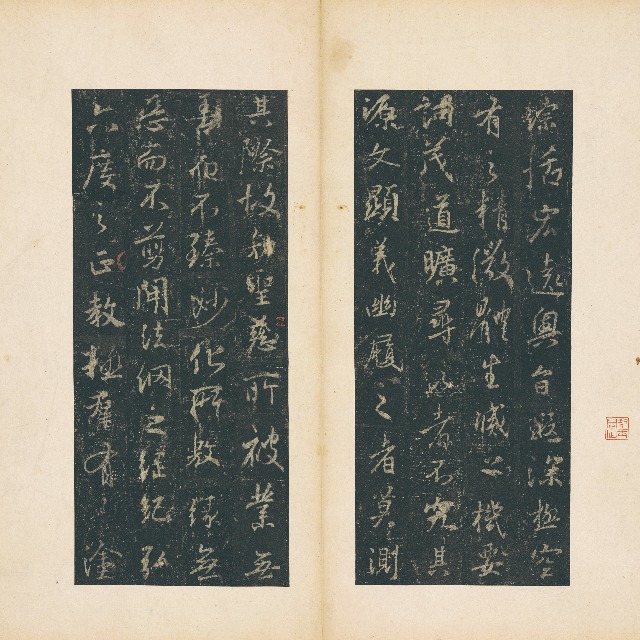 綜括宏遠奧旨遐深極空
有之精微體生滅之機要
詞茂道曠尋之者不究其
源文顯義幽履之者莫測
其際故知聖慈所被業無
善而不臻妙化所敷緣無
惡而不剪開法網之綱紀弘
六度之正教拯羣有之塗